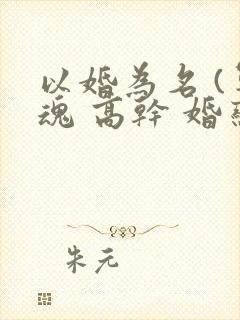 以婚為名(
魂 高幹 婚
朱元